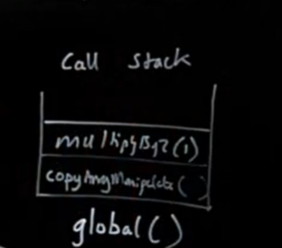 Call Stack
multiplyBy2(1)
copyArrayManipulate( )
global()